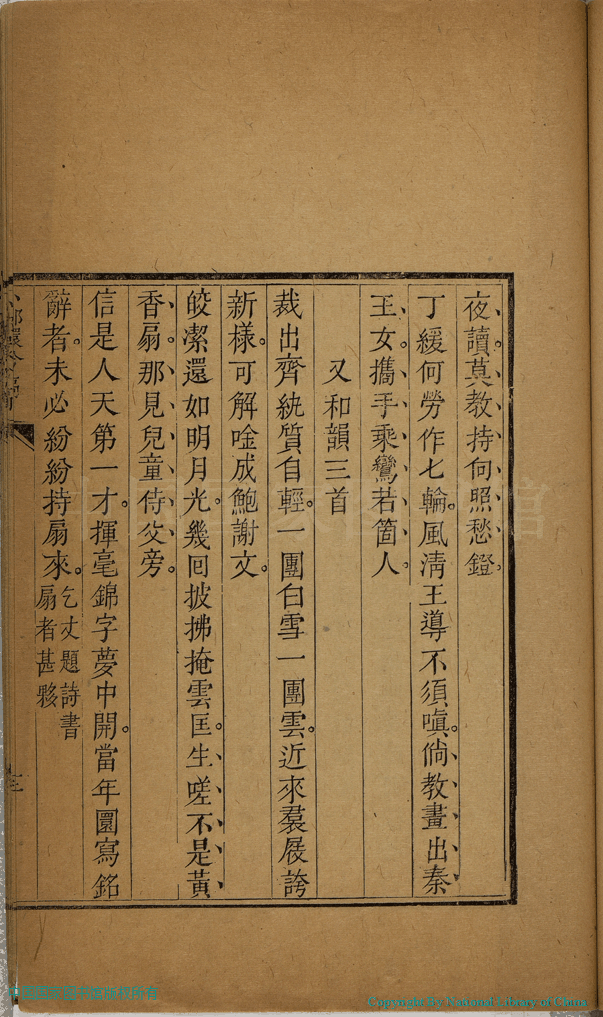 夜讀莫教持向照愁鐙
丁緩何勞作七輪風淸王導不須嗔倘教畫出秦
王女攜手乘鸞若箇人
又和韻三首
裁出齊紈質自輕一團白雪一團雲近來裠屐誇
新樣可解唫成鮑謝文
皎潔還如明月光幾回披拂掩雲匡生嗟不是黃
香扇那見兒童侍父旁
信是人天第一才揮毫錦字夢中開當年團寫銘
辭者未必紛紛持扇來乞丈題詩書
扇者甚夥
Copyright By National Library of China